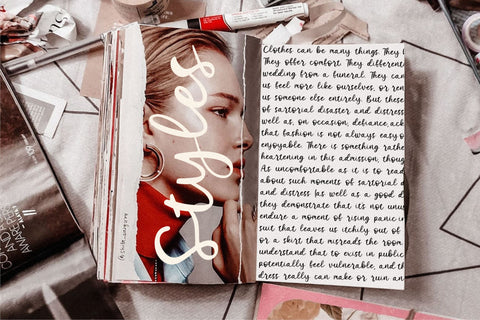 Styles
Clothes can be many things. They
They offer comfort. They different
wedding from a funeral. They can
us feel more like ourselves, or ren
us someone else entirely. But these
of sartorial disaster and distress
well as, on occasion, defiance, ack
that fashion is not always easy o
enjoyable. There is something rathe
heartening in this admission, thoug
As uncomfortable as it is to read
about such moments of sartorial d
and distress as well as a good d
they demonstrate that it's not unus
endure a moment of rising panic in
suit that leaves us itchily out of
or a skirt that misreads the room.
understand that to exist in public
potentially feel vulnerable, and th
dress really can make or ruin an